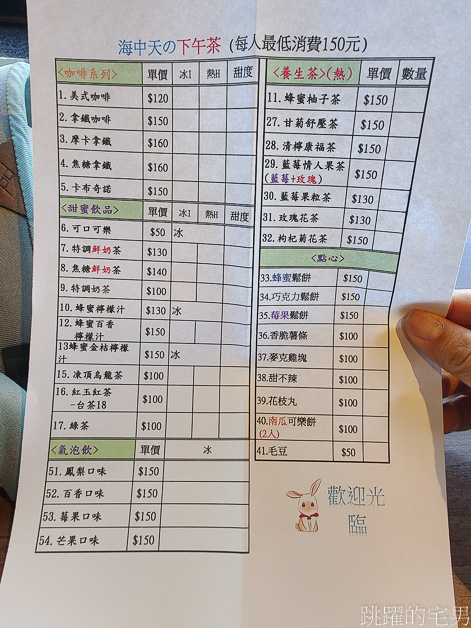 海中天の下午茶 (每人最低消費150元)
<咖啡系列> 單價 冰I 熱H 甜度
1.美式咖啡 $120
2.拿鐵咖啡 $150
3.摩卡拿鐵 $160
4.焦糖拿鐵 $160
5.卡布奇諾 $150
<甜蜜飲品> 單價 冰I 熱H 甜度
6.可口可樂 $50 冰
7.特調鮮奶茶 $130
8.焦糖鮮奶茶 $140
9.特調奶茶 $100
10.蜂蜜檸檬汁 $130 冰
12.蜂蜜百香
檸檬汁 $150
13蜂蜜金桔檸檬
汁 $150 冰
15.凍頂烏龍茶 $100
16.紅玉紅茶
-台茶18 $100
17.綠茶 $100
<氣泡飲> 單價 冰
51.鳳梨口味 $150
52.百香口味 $150
53.莓果口味 $150
54.芒果口味 $150
<養生茶>(熱) 單價 數量
11.蜂蜜柚子茶 $150
27.甘菊舒壓茶 $150
28.清檸康福茶 $150
29.藍莓情人果茶
(藍莓+玫瑰) $150
30.藍莓果粒茶 $130
31.玫瑰花茶 $130
32.枸杞菊花茶 $150
<點心>
33.蜂蜜鬆餅 $150
34.巧克力鬆餅 $150
35.莓果鬆餅 $150
36.香脆薯條 $100
37.麥克雞塊 $100
38.甜不辣 $100
39.花枝丸 $100
40.南瓜可樂餅
(2人) $100
41.毛豆 $50
歡迎光
臨
跳躍的宅男